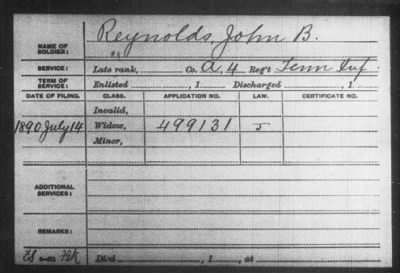 Reynolds, John B.
NAME OF SOLDIER:
SERVICE: Late rank, Co. A, 4 Reg't Tenn Inf.
TERM OF SERVICE: Enlisted , 1 Discharged , 1
DATE OF FILING. CLASS. APPLICATION NO. LAW. CERTIFICATE NO.
Invalid,
1890 July 14 Widow, 499131
Minor,
ADDITIONAL SERVICES:
REMARKS:
Died , 1 , at